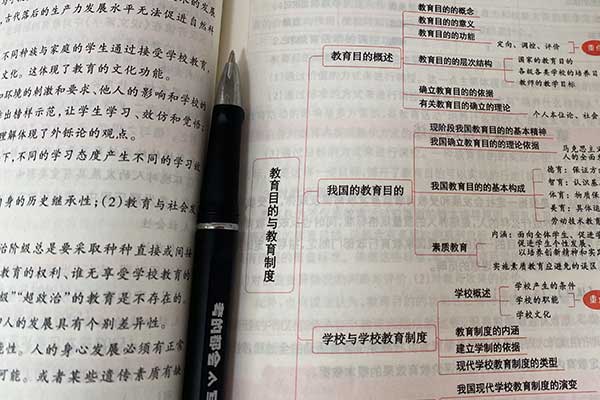 的发展
古代落后的生产力发展水平无法促进自然科
不同种族与家庭的学生通过接受学校教育,
文化。这体现了教育的文化功能。
和环境的刺激和要求、他人的影响和学校的
出替样示范,让学生学习、效仿和觉悟;
理解体现了外铄论的观点。
下,不同的学习态度产生不同的学习效
自身的历史继承性;(2)教育与社会发
治阶级总是要采取种种直接或间接
教育的权利、谁无享受学校教育的
级”“超政治”的教育是不存在的。
人的发展具有个别差异性。
能性。人的身心发展必须有正常
可能。或者某些遗传素质有缺
考的都会
教育目的与教育制度
教育目的概述
教育目的的概念
教育目的的意义
教育目的的功能
定向、调控、评价
教育目的的层次结构
国家的教育目的
各级各类学校的培养目
教师的教学目标
确立教育目的的依据
有关教育目的确立的理论
个人本位论、社会
我国的教育目的
现阶段我国教育目的的基本精神
我国确立教育目的的理论依据
马克思主义
人的全面发
我国教育目的的基本构成
德育:保证方
智育:认识基
体育:物质保
美育:具体运
劳动技术教育
素质教育
内涵:面向全体学生、促进学
促进学生个性发展、
以培养创新精神和实践
实施素质教育应避免的误区
学校与学校教育制度
学校概述
学校产生的条件
学校的职能
学校文化
教育制度的内涵
建立学制的依据
现代学校教育制度的类型
我国现代学校教育制度的演变